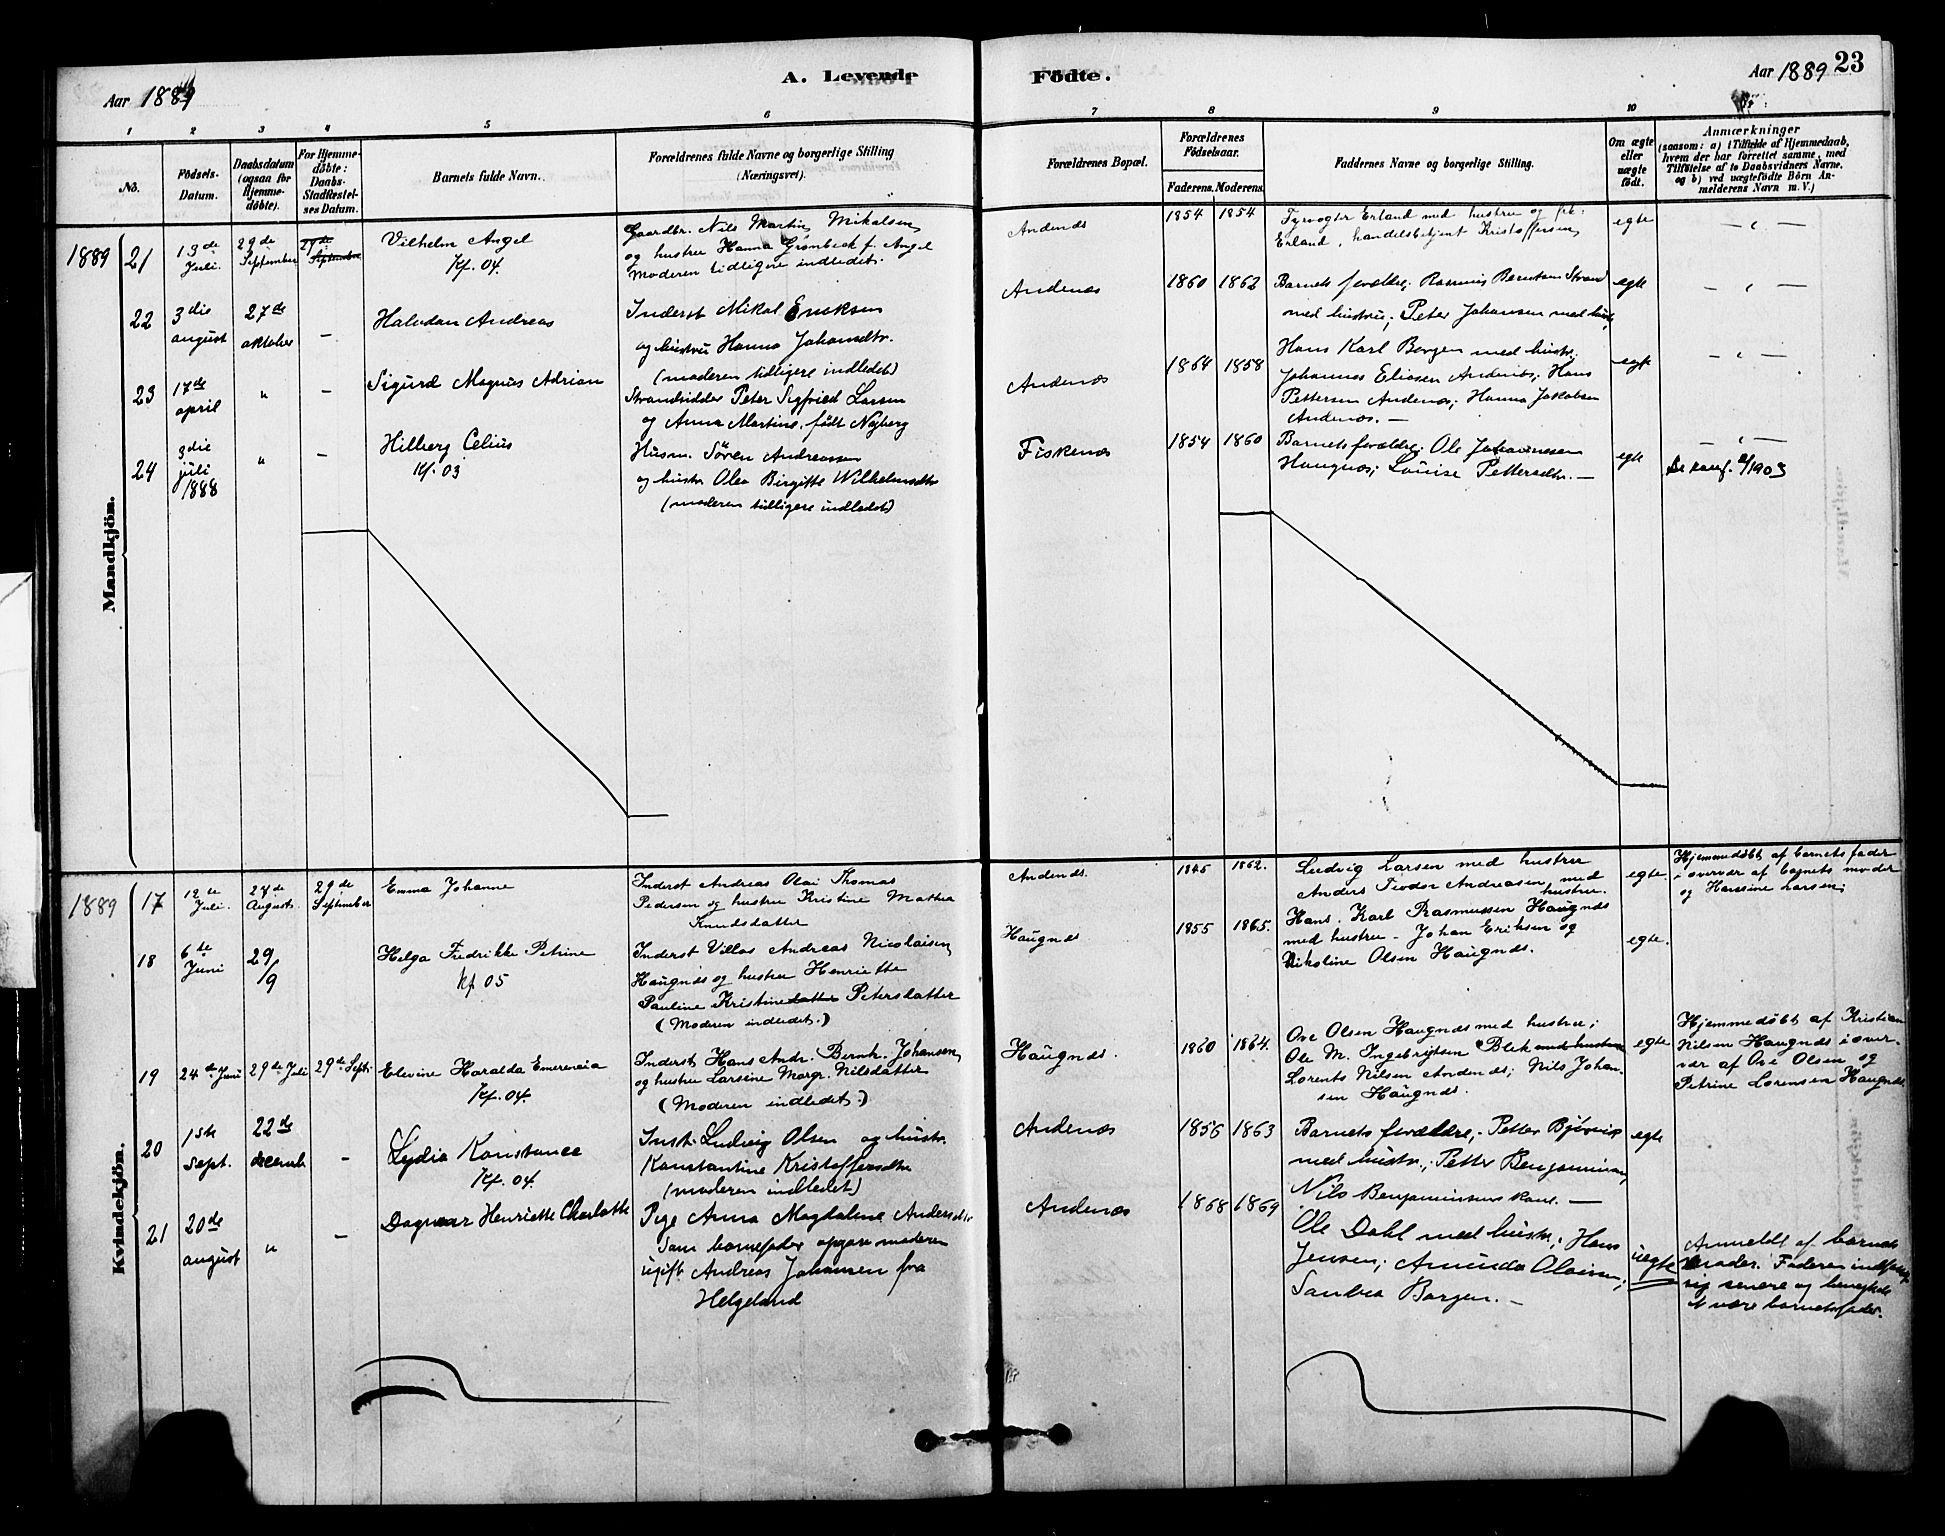 Aar 1889
A. Levende
Fødte.
Aar 1889
23
1
2
3
4
5
6
7
8
9
10
No.
Fødsels-
Datum.
Daabsdatum
(ogsaa for
Hjemme-
døbte).
For Hjemme-
døbte:
Daabs-
Stadfæstel-
ses Datum.
Barnets fulde Navn.
Forældrenes fulde Navne og borgerlige Stilling
(Næringsvei).
Forældrenes Bopæl.
Forældrenes
Fødselsaar.
Faderens.
Moderens.
Faddernes Navne og borgerlige Stilling.
Om ægte
eller
uægte
født.
Anmærkninger
(saasom: a) i Tilfælde af Hjemmedaab,
hvem der har forrettet samme, med
Tilføielse af to Daabsvidners Navne,
og b) ved uægtefødte Børn An-
melderens Navn m. V.)
Mandkjøn.
1889
21
13de
Juli.
29de
September
29de
September
Vilhelm Angel
Kf. 04.
Gaardbr. Nils Martin Mikalsen
og hustru Hanna Grønbeck f. Angel
Moderen tidligere indledet.
Andenæs
1854
1854
Fyrvogter Erland med hustru og frk.
Erland, handelsbetjent Kristoffersen
egte
— " —
22
3die
august
27de
oktober
–
Halvdan Andreas
Inderst Mikal Eriksen
og hustru Hanna Johansdtr.
(moderen tidligere indledet)
Andenæs
1860
1862
Barnets forældre; Rasmus Berntsen Strand
med hustru; Peter Johansen med hustr.
egte
— " —
23
17de
april
"
–
Sigurd Magnus Adrian
Strandsidder Peter Sigfried Larsen
og Anna Martine, født Nyberg
Andenæs
1864
1858
Hans Karl Borgen med hustr.
Johannes Eliasen Andenæs; Hans
Pettersen Andenæs; Hanna Jakobsen
Andenæs. —
egte
— " —
24
3die
juli
1888
"
–
Hilberg Celius
Kf. 03
Husm. Søren Andreassen
og hustr. Olea Birgitte Wilhelmsdtr
(moderen tidligere indledet)
Fiskenæs
1854
1860
Barnets forældre; Ole Johannesen
Haugnæs; Louise Pettersdtr. —
egte
— " —
Kvindekjøn.
1889
17
12te
Juli.
27de
August.
29de
September
Emma Johanne
Inderst Andreas Olai Thomas
Pedersen og hustru Kristine Mathea
Knudsdatter
Andenæs.
1845
1862.
Ludvig Larsen med hustru
Anders Teodor Andreasen med
hustru.
egte
Hjemmedøbt af barnets fader
i overvær af barnets moder
og Hansine Larsen;
18
6te
Juni
29/9
Helga Fredrikke Petrine
kf 05
Inderst Villas Andreas Nicolaisen
Haugnæs og hustru Henriette
Pauline Kristinedatter Petersdatter
(Moderen indledet.)
Haugnæs
1855
1865.
Hans Karl Rasmussen Haugnæs
med hustru – Johan Eriksen og
Nikoline Olsen Haugnæs.
egte.
19
24de Juni
29de Juli
29de Sept.
Elevine Haralda Emerensia
Kf. 04.
Inderst Hans Andr. Bernh. Johansen
og hustru Larsine Margr. Nilsdatter
(Moderen indledet.)
Haugnæs.
1860
1864.
Ove Olsen Haugnæs med hustru;
Ole M. Ingebrigtsen Blek med hustru
Lorents Nilsen Andenæs; Nils Johan-
sen Haugnæs.
egte
Hjemmedøbt af Kristian
Nilsen Haugnæs i over-
vær af Ove Olsen og
Petrine Lorensen Haugnæs
20
1ste
Sept.
22de
decemb
–
Lydia Konstance
Kf. 04.
Inst. Ludvig Olsen og hustr.
Konstantine Kristoffersdtr
(moderen indledet)
Andenæs
1856
1863
Barnets forældre; Petter Bjørvik
med hustr.; Petter Benjaminsen,
Nils Benjaminsens kone. —
egte
21
20de
august
"
–
Dagmar Henriette Charlotte
Pige Anna Magdalene Andersdtr
Som barnefader opgav moderen
ugift Andreas Johansen fra
Helgeland
Andenæs
1868
1869
Ole Dahl med hustr.; Hans
Jensen; Amunda Olaisen;
Sandra Borgen. –
uegte
Anmeldt af barnets
Moder. Faderen
sig senere og
at være barnets fader.